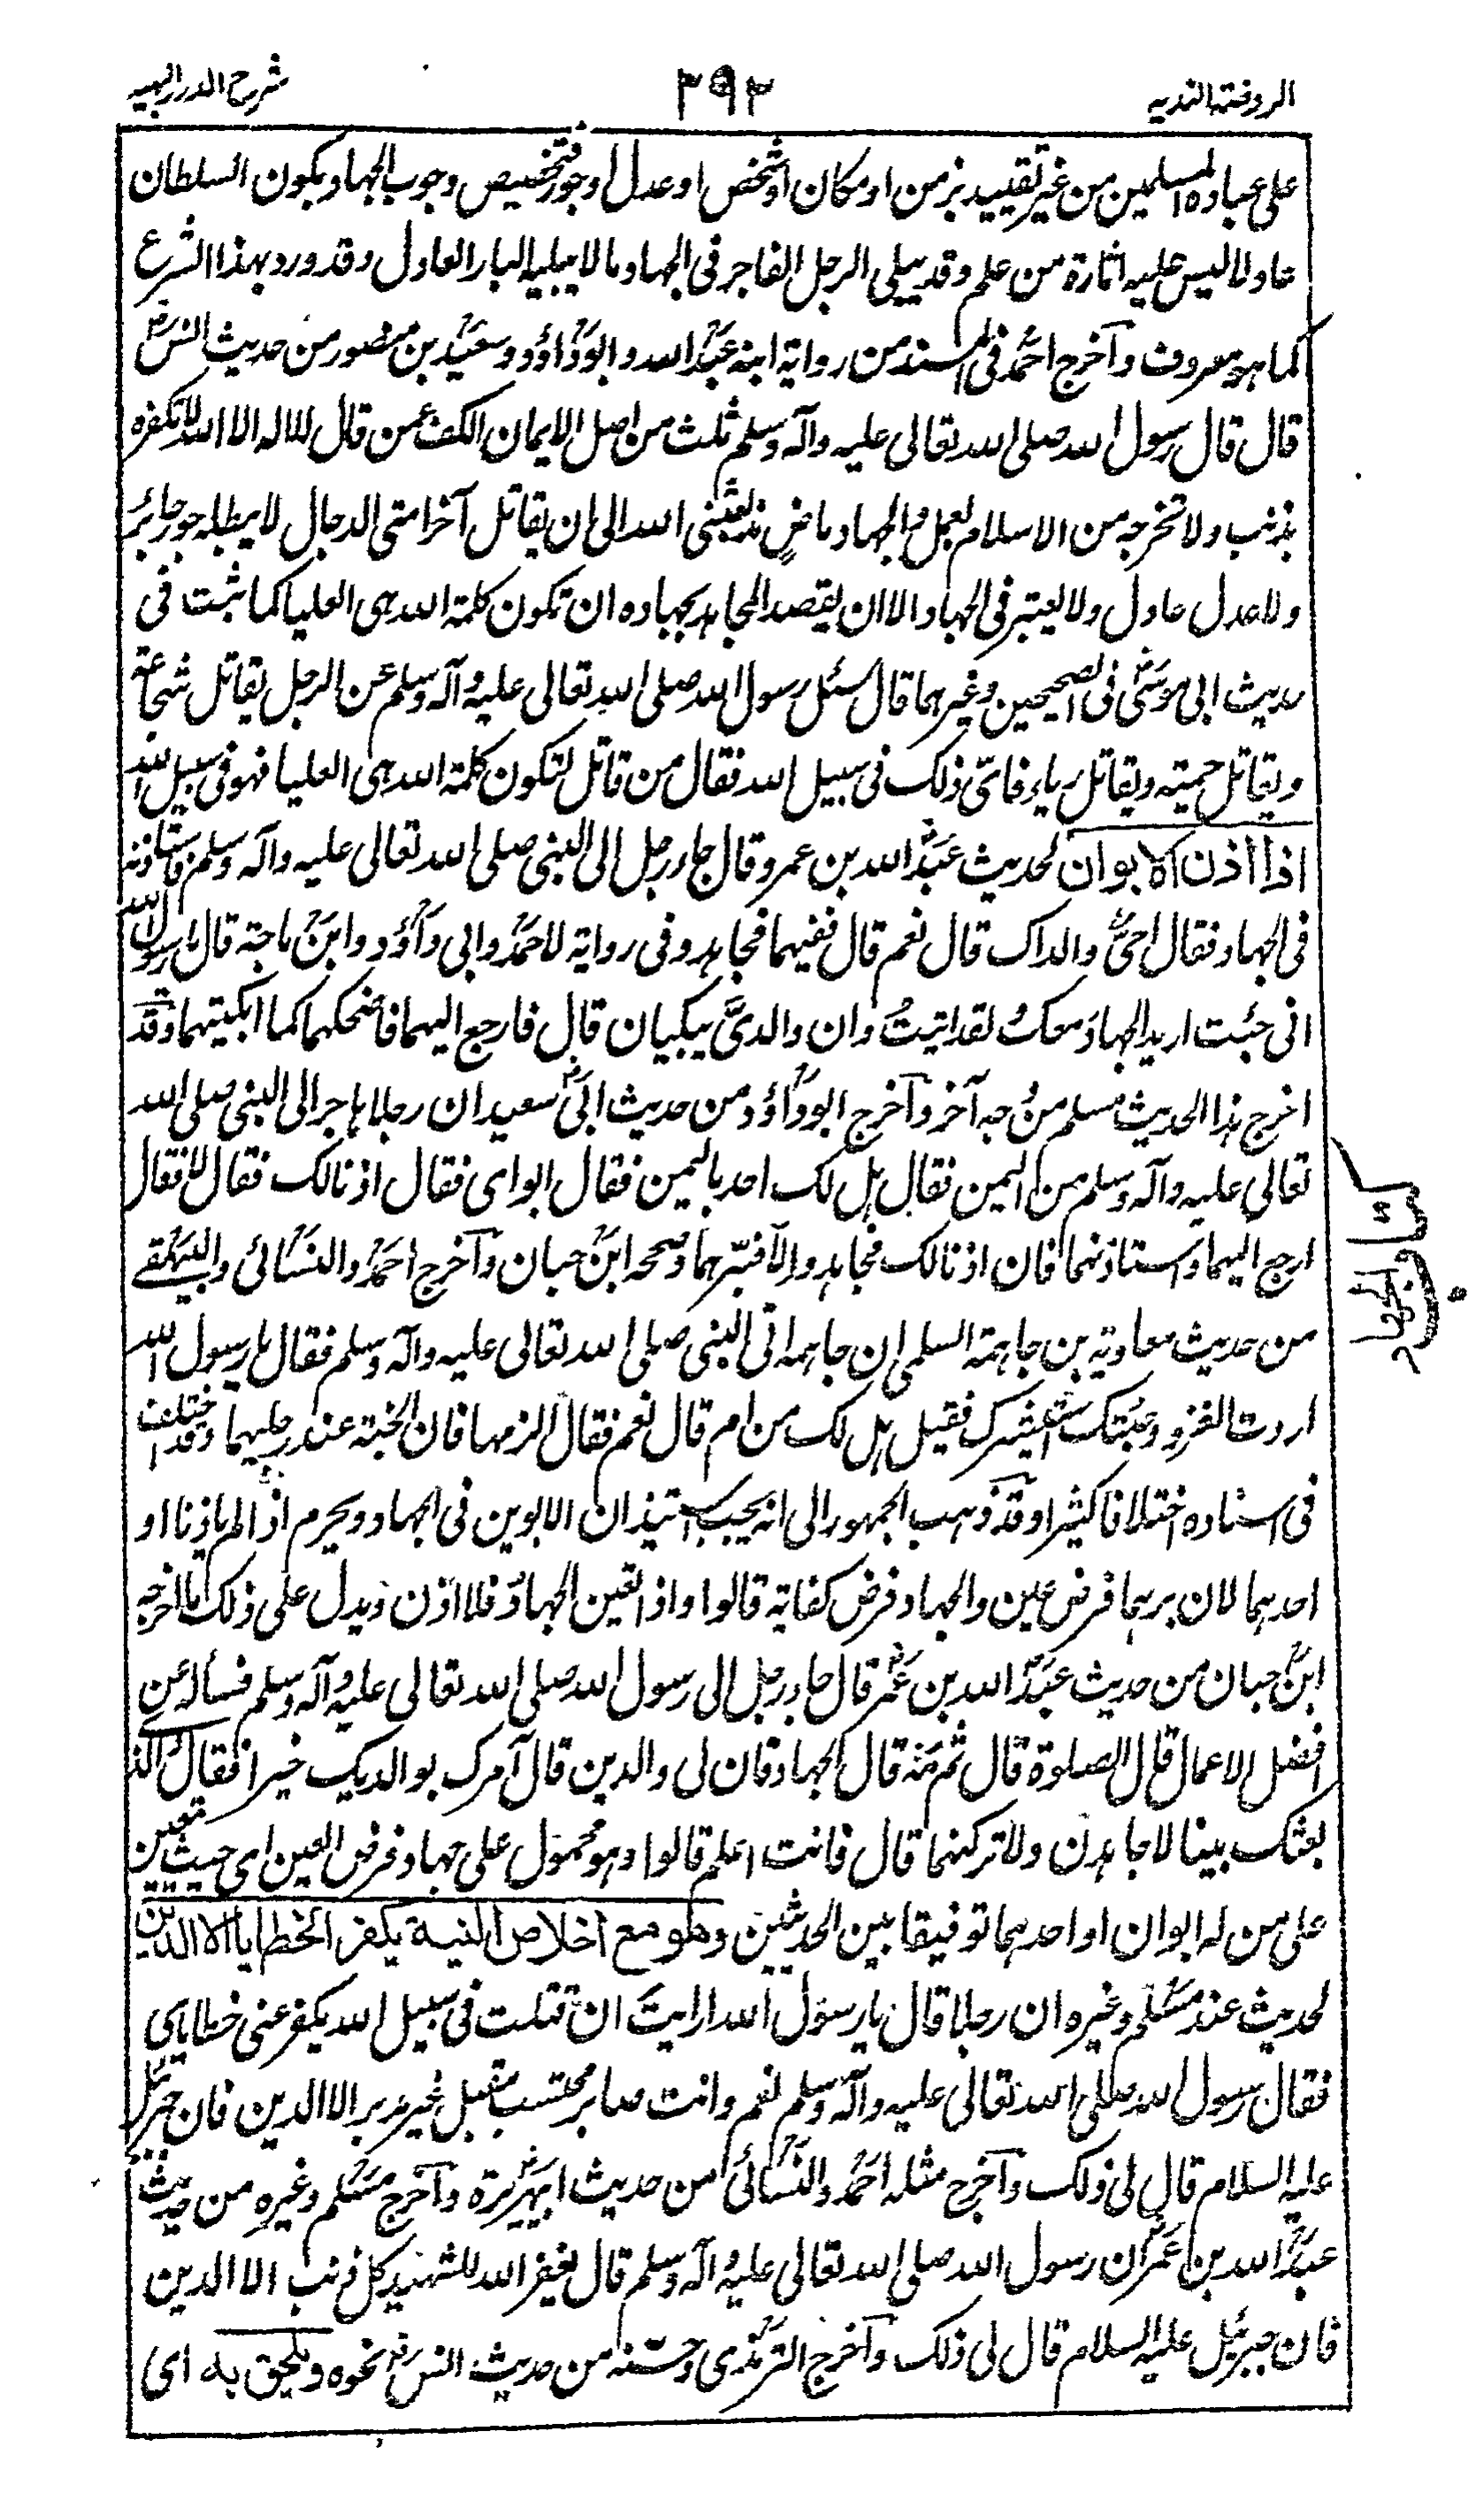 الروضة الندية
٣٩٢
شرح الدرر البهية
على عباده المسلمين من غير تقييد بزمن او مكان او شخص او عدل او جور فتخصيص وجوب الجهاد بكون السلطان
عادلا ليس عليه اثارة من علم وقد يبلى الرجل الفاجر فى الجهاد ما لا يبليه البار العادل وقد ورد بهذا الشرع
كما هو معروف وأخرج احمد فى المسند من رواية ابنه عبد الله وابو داؤد وسعيد بن منصور من حديث انس رض
قال قال رسول الله صلى الله تعالى عليه وآله وسلم ثلث من اصل الايمان الكف عمن قال لا اله الا الله لا نكفره
بذنب ولا تخرجه من الاسلام بعمل والجهاد ماض مذ بعثنى الله الى ان يقاتل آخر امتى الدجال لا يبطله جور جائر
ولا عدل عادل ولا يعتبر فى الجهاد الا ان يقصد المجاهد بجهاده ان تكون كلمة الله هى العليا كما ثبت فى
حديث ابى موسى رض فى الصحيحين وغيرهما قال سئل رسول الله صلى الله تعالى عليه وآله وسلم عن الرجل يقاتل شجاعة
ويقاتل حمية ويقاتل رياء فاىّ ذلك فى سبيل الله فقال من قاتل لتكون كلمة الله هى العليا فهو فى سبيل الله
اذا اذن الابوان لحديث عبد الله بن عمرو قال جاء رجل الى النبى صلى الله تعالى عليه وآله وسلم فاستاذنه
فى الجهاد فقال احىٌّ والداك قال نعم قال ففيهما فجاهد وفى رواية لاحمد وابى داؤد وابن ماجة قال يا رسول الله
انى جئت اريد الجهاد معك ولقد اتيتُ وان والدىَّ يبكيان قال فارجع اليهما فاضحكهما كما ابكيتهما وقد
اخرج هذا الحديث مسلم من وجه آخر وأخرج ابو داؤد من حديث ابى سعيد ان رجلا هاجر الى النبى صلى الله
تعالى عليه وآله وسلم من اليمن فقال هل لك احد باليمن فقال ابواى فقال اذنا لك فقال لا فقال
ارجع اليهما واستاذنهما فان اذنا لك فجاهد والا فبرّهما وصححه ابن حبان وأخرج احمد والنسائى والبيهقے
من حديث معاوية بن جاهمة السلمى ان جاهمه اتى النبى صلى الله تعالى عليه وآله وسلم فقال يا رسول الله
اردت الغزو وجئتك استشيرك فقيل هل لك من ام قال نعم فقال الزمها فان الجنة عند رجليها وقد اختلف
فى اسناده اختلافا كثيرا وقد ذهب الجمهور الى انه يجب استيذان الابوين فى الجهاد ويحرم اذا لم ياذنا او
احدهما لان برهما فرض عين والجهاد فرض كفاية قالوا واذا تعين الجهاد فلا اذن ويدل على ذلك ما اخرجه
ابن حبان من حديث عبد الله بن عمر قال جاء رجل الى رسول الله صلى الله تعالى عليه وآله وسلم فسأله عن
افضل الاعمال قال الصلوة قال ثم مه قال الجهاد قال فان لى والدين قال آمرك بوالديك خيرا فقال والذى
بعثك بينا لاجاهدن ولاتركنهما قال فانت اعلم قالوا وهو محمول على جهاد فرض العين اى حيث يتعين
على من له ابوان او احدهما توفيقا بين الحديثين وهو مع اخلاص النية يكفر الخطايا الا الدين
لحديث عند مسلم وغيره ان رجلا قال يا رسول الله ارايت ان قتلت فى سبيل الله يكفر عنى خطاياى
فقال رسول الله صلى الله تعالى عليه وآله وسلم نعم وانت صابر محتسب مقبل غير مدبر الا الدين فان جبرئيل
عليه السلام قال لى ذلك وأخرج مثله احمد والنسائى من حديث ابى هريرة وأخرج مسلم وغيره من حديث
عبد الله بن عمر ان رسول الله صلى الله تعالى عليه وآله وسلم قال يغفر الله للشهيد كل ذنب الا الدين
فان جبرئيل عليه السلام قال لى ذلك وأخرج الترمذى وحسنه من حديث انس رض نحوه ويلحق به اى